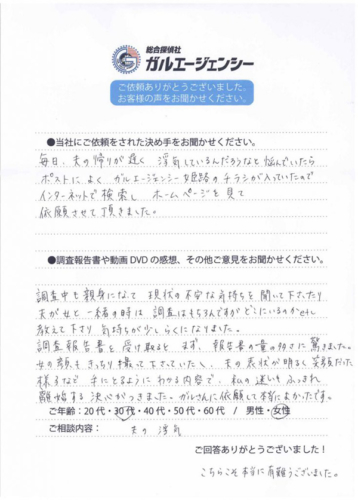 総合探偵社
ガルエージェンシー
ご依頼ありがとうございました。
お客様の声をお聞かせください。
●当社にご依頼をされた決め手をお聞かせください。
毎日、夫の帰りが遅く 浮気しているんだろうなと悩んでいたら
ポストに よく ガルエージェンシー姫路の チラシが入っていたので
インターネットで検索し ホームページを見て
依頼させて頂きました。
●調査報告書や動画DVDの感想、その他ご意見をお聞かせください。
調査中も親身になって 現状の不安な気持ちを聞いて下さったり
夫が女と一緒の時は 調査はもちろんですが どこにいるのかetc
教えて下さり 気持ちが少しらくになりました。
調査報告書を受け取ると まず、報告書の量の多さに驚きました。
女の顔もきっちり撮って下さっていたし、夫の表状が明るく笑顔だった
様子まで 手にとるように わかる内容で、私の迷いもふっきれ
離婚する決心がつきました。ガルさんに依頼して本当によかったです。
ご年齢:20代・30代・40代・50代・60代 / 男性・女性
ご相談内容: 夫の浮気
ご回答ありがとうございました!
こちらこそ本当に有難うございました。